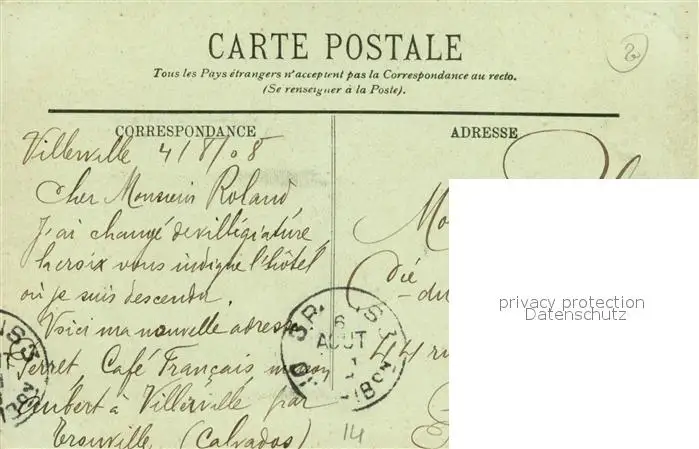 CARTE POSTALE
2
Tous les Pays étrangers n'acceptent pas la Correspondance au recto.
(Se renseigner à la Poste).
CORRESPONDANCE
Villerville 4/8/08
Cher Monsieur Roland
J'ai changé de villégiature,
la croix vous indique l'hôtel
où je suis descendu.
Voici ma nouvelle adresse
Ferret, Café Français maison
Aubert à Villerville par
Trouville (Calvados)
14
ADRESSE
44 ru
6
AOUT
privacy protection
Datenschutz